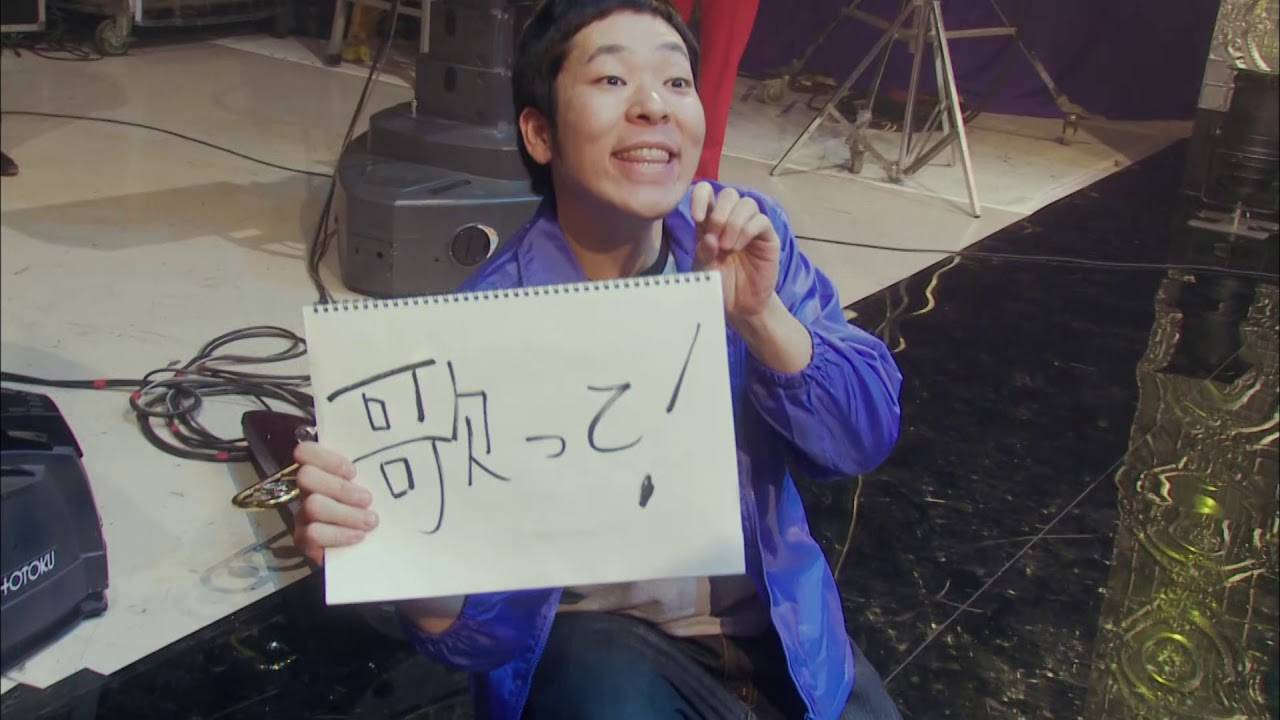 歌って!
HOTOKU